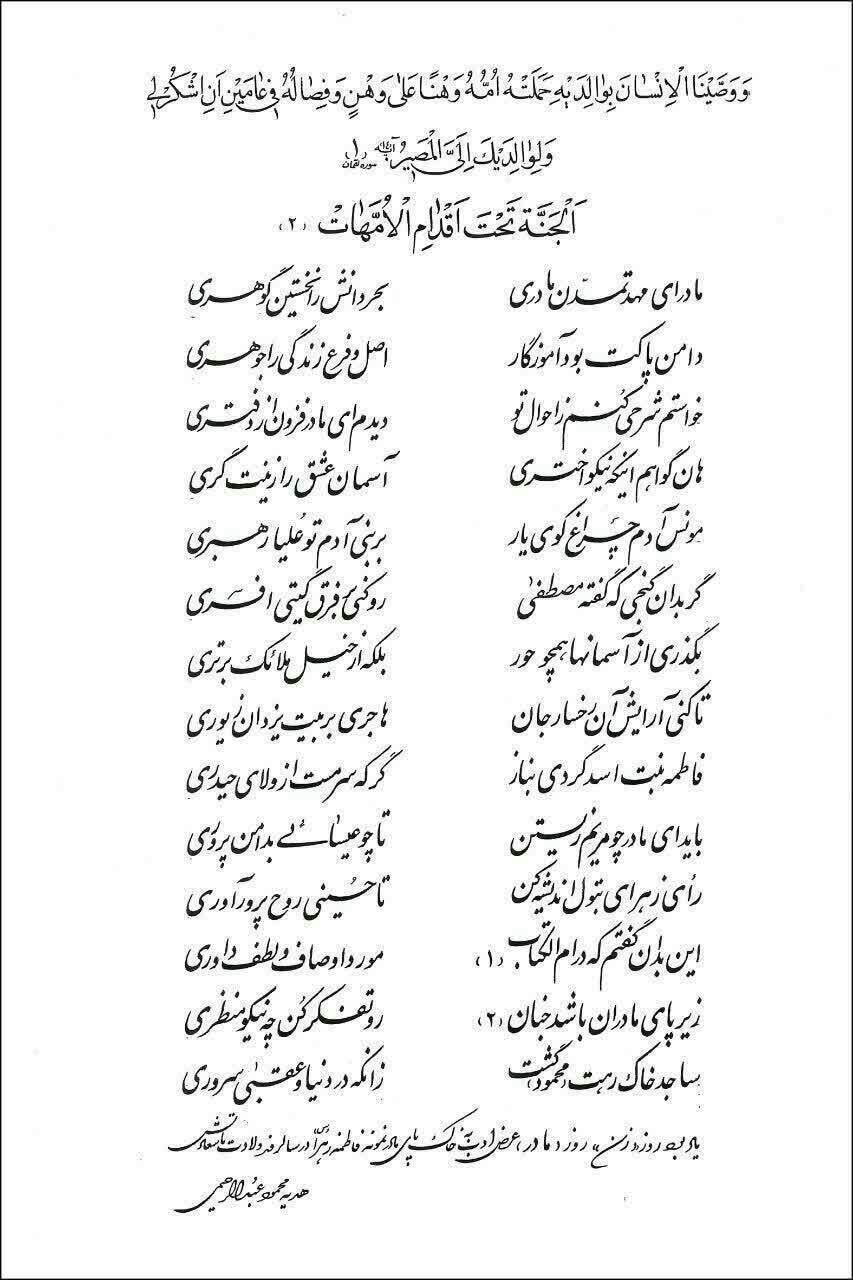 وَوَصَّيْنَا الْاِنْسَانَ بِوالِدَيْهِ حَمَلَتْهُ اُمُّهُ وَهْنًا عَلىٰ وَهْنٍ وَفِصالُهُ فى عامَيْنِ اَنِ اشْكُرْلى
وَلِوالِدَيْكَ اِلَىَّ الْمَصيرُ (۱) سوره لقمان
اَلْجَنَّةُ تَحْتَ اَقْدامِ الْاُمَّهات (۲)
مادر ای مهد تمدّن مادری بحر دانش را نخستین گوهری
دامن پاکت بود آموزگار اصل و فرع زندگی را جوهری
خواستم شرحی کُنم ز احوال تو دیدم ای مادر فزون از دفتری
هان گواهم اینکه نیکو اختری آسمان عشق را زینت گری
مونس آدم چراغ کوی یار بر بنی آدم تو عُلیا رهبری
گر بدان گنجی که گفته مصطفیٰ رو کنی بر فرق گیتی افسری
بگذری از آسمانها همچو حور بلکه از خیل ملائک برتری
تا کنی آرایش آن رخسار جان هاجری بر بیت یزدان زیوری
فاطمه بنت اسد گردی بناز گر که سرمست از ولای حیدری
باید ای مادر چو مریم زیستن تا چو عیسائے بدامن پروری
رأی زهرای بتول اندیشه کن تا حُسینی روح پرور آوری
این بدان گفتم که در ام الکتاب (۱) مورد اوصاف و لطف داوری
زیر پای مادران باشد جنان (۲) رو تفکر کُن چه نیکو منظری
ساجد خاک رهت «محمود» گشت زانکه در دنیا و عقبیٰ سروری
بِه روز «زن»، روز «مادر»، عرض ادب به خاک پای مادر نمونه فاطمه زهرا در سالروز ولادت باسعادتش
هدیه محمود عبدالرحیمی